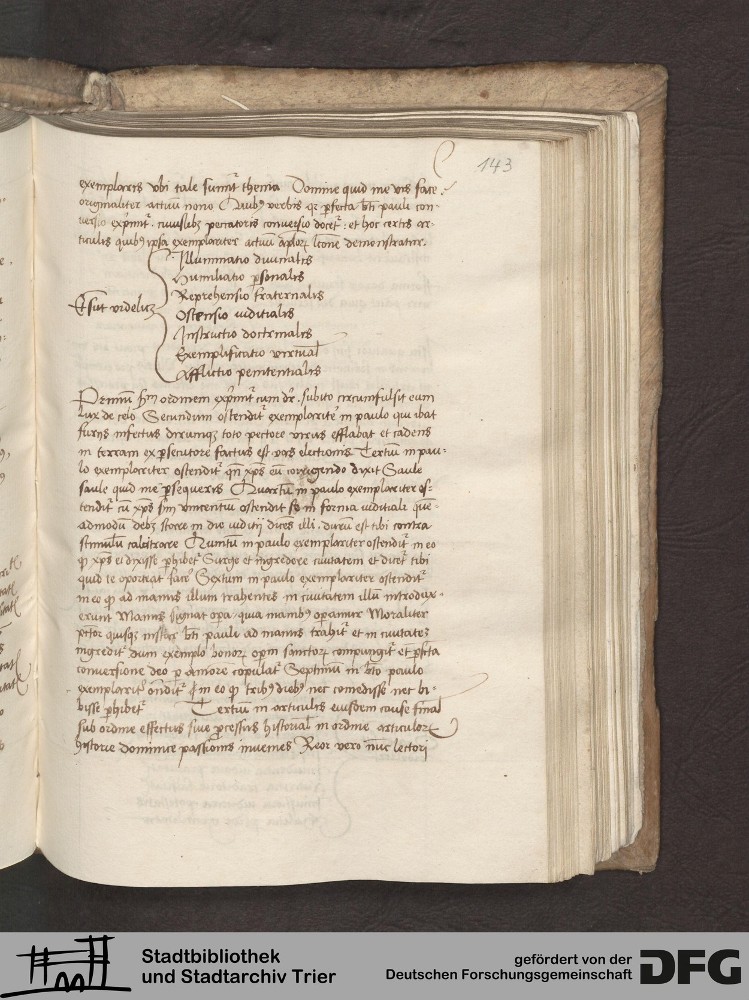 143
exemplaris ubi tale sumit͛ thema Domine quid me vis face͛
originaliter actuū nono Quibꝰ verbis qꝛ ꝑfecta bt̄i pauli con-
versio exp͛mit͛. cuiuslibꝫ peccatoris conversio docet͛: et hoc certis ar-
ticulis quibꝰ ipsa exemplariter actuū apl̄oꝝ demonstratur.
Illuminatio divinalis
Humiliatio ꝑsonalis
Et sūt videlicꝫ
Reprehensio fraternalis
Ostensio iudicialis
Instructio doctrinalis
Exemplificatio virtual̄
Afflictio penitentialis
Primū ordinem exp͛mit͛ cum dr̄. subito circumfulsit eum
lux de celo Secundum ostendit͛ exemplarite͛ in paulo qui ibat
furijs infectus dirumqꝫ toto pectore virus efflabat et cadens
in terram ex ꝑsecutore factus est vas electionis Tertiū in pau-
lo exemplariter ostendit͛ qn̄ xp̄s eū corrigendo dixit Saule
saule quid me ꝑsequeris Quartū in paulo exemplariter os-
tendit͛ cū xp̄s ostendit se in forma iudiciali quē-
admodū debꝫ in die iudicij dicēs illi. durū est tibi contra
stimulū calcitrare Quintū in paulo exemplariter ostendit͛ in eo
qꝫ xp̄s ei dixisse ꝑhibet͛ Surge et ingredere civitatem et dicet͛ tibi
quid te oporteat face͛ Sextum in paulo exemplariter ostendit͛
in eo qꝫ ad manus illum trahentes in civitatem illū introdux-
erunt Manus signat opa, quia manibꝰ opamur Moraliter
pctor quisqꝫ instar bt̄i pauli ad manus trahit͛ et in civitatē
ingredit͛ dum exemplo bonoꝝ opm sanctoꝝ compungit͛ et ꝑfcta
conversione deo ꝑ amorē copulat͛ Septimū in bt̄o paulo
exemplarit͛ ōndit͛ in eo qꝫ tribꝰ diebꝰ nec comedisse nec bi-
bisse ꝑhibet͛ Tertium in articulis eiusdem cause final̄
sub ordine effectus sive ꝓcessus historial̄ in ordine articuloꝝ
historie dominice passionis invenies Reor vero nūc lectori
Stadtbibliothek
und Stadtarchiv Trier
gefördert von der
Deutschen Forschungsgemeinschaft
DFG